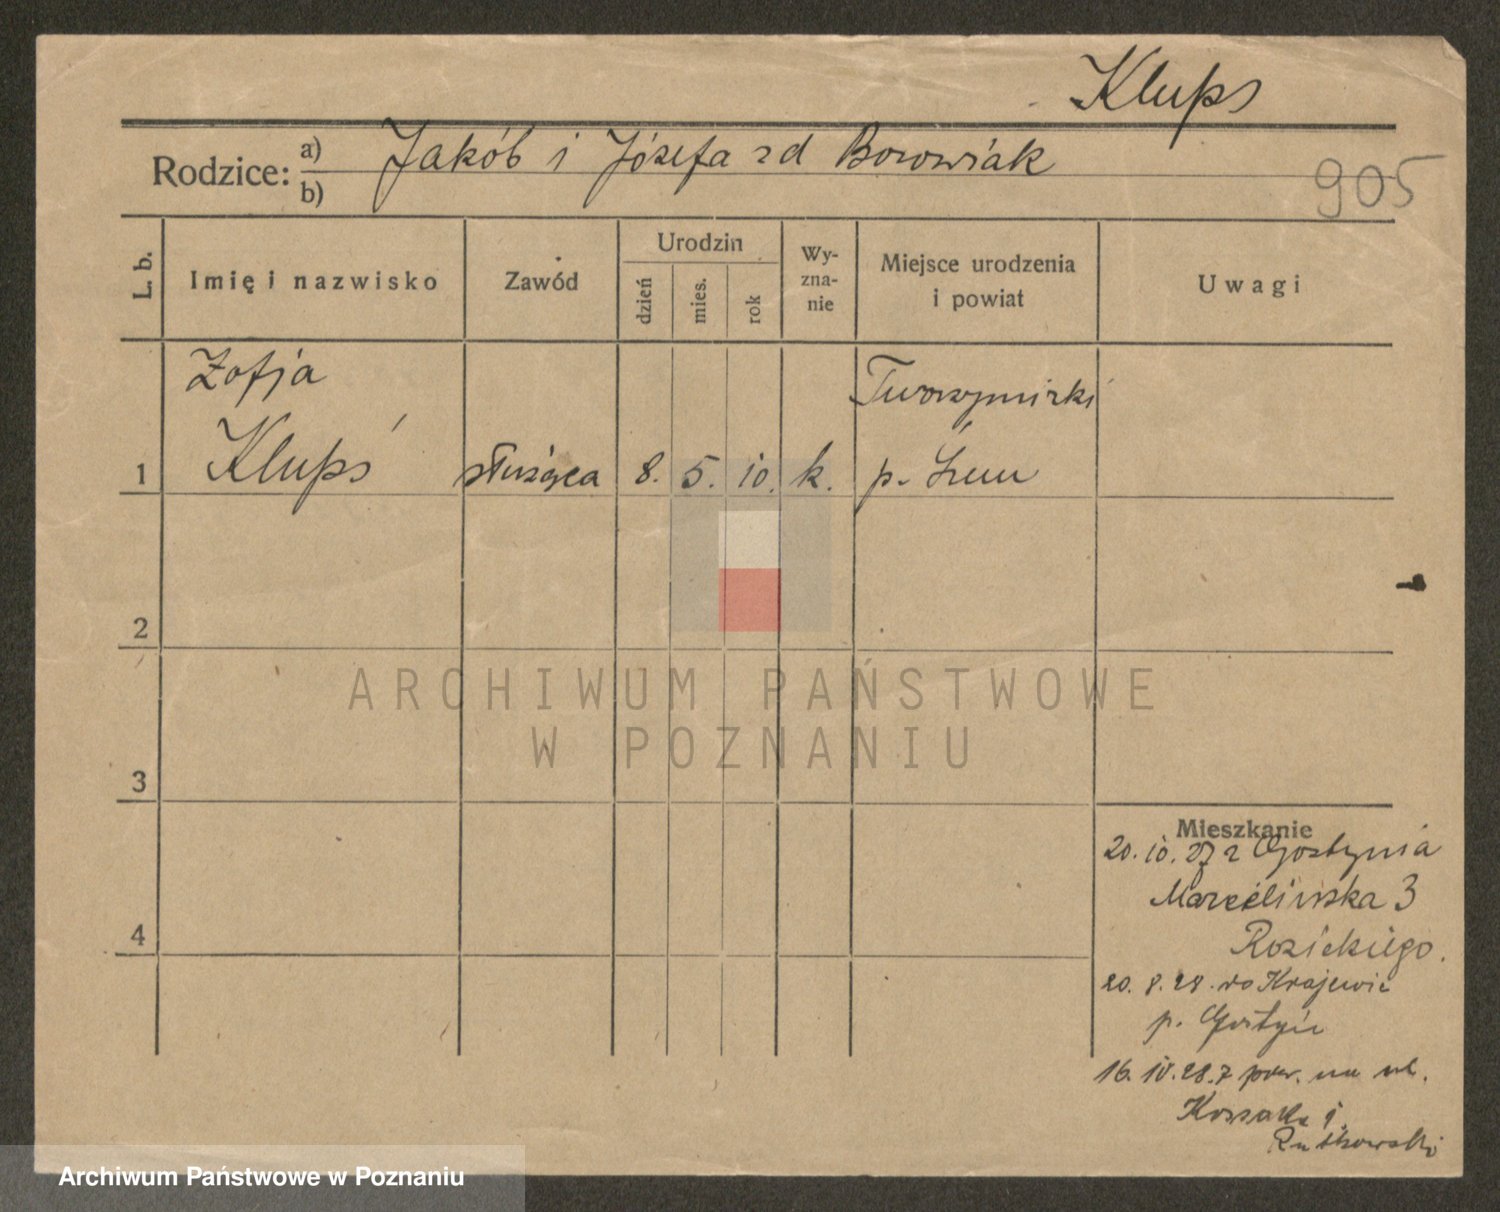 Klupś
Rodzice: a) Jakób i Józefa zd Borowiak
b)
905
L. b.
Imię i nazwisko
Zawód
Urodzin
dzień
mies.
rok
Wy-
zna-
nie
Miejsce urodzenia
i powiat
Uwagi
Zofja
Tworzymirki
1 Klupś służąca 8. 5. 10. k. p. Śrem
2
ARCHIWUM PAŃSTWOWE
W POZNANIU
3
Mieszkanie
20. 10. 27 z Gostynia
Marcelińska 3
4
20. 8. 28. do Krajewic
p. Gostyń
16. 10. 28. z pow. na ul.
Kossaka 9
Rutkowski
Archiwum Państwowe w Poznaniu